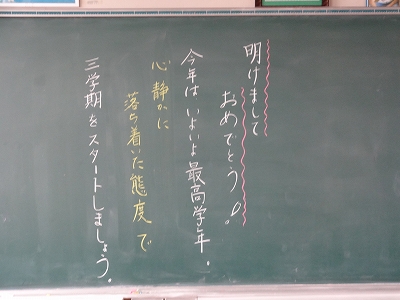 明けまして
おめでとう!
今年はいよいよ最高学年。
心静かに
落ち着いた態度で
三学期をスタートしましょう。